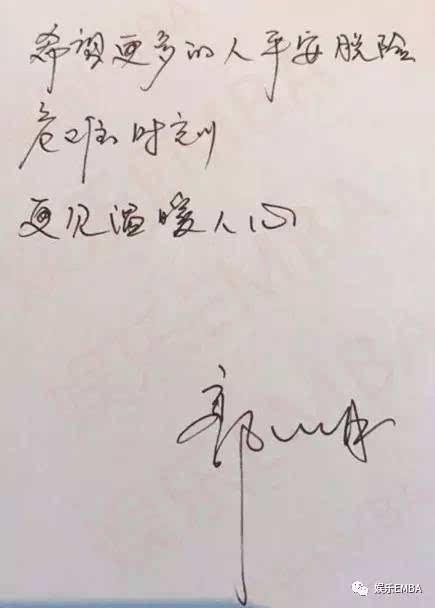 希望更多的人平安脱险
危难时刻
更见温暖人心
娱乐EMBA